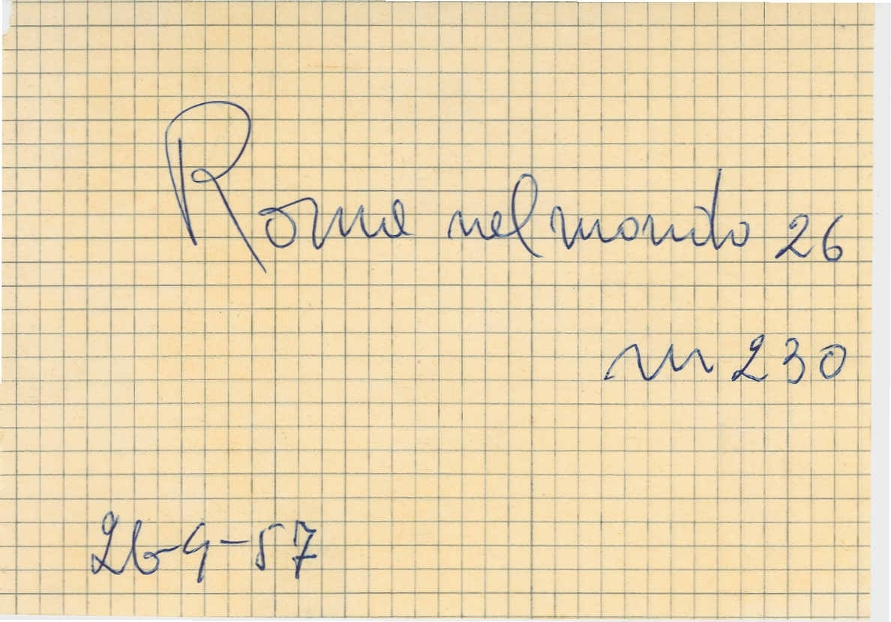 Roma nel mondo 26
m 230
26-9-57